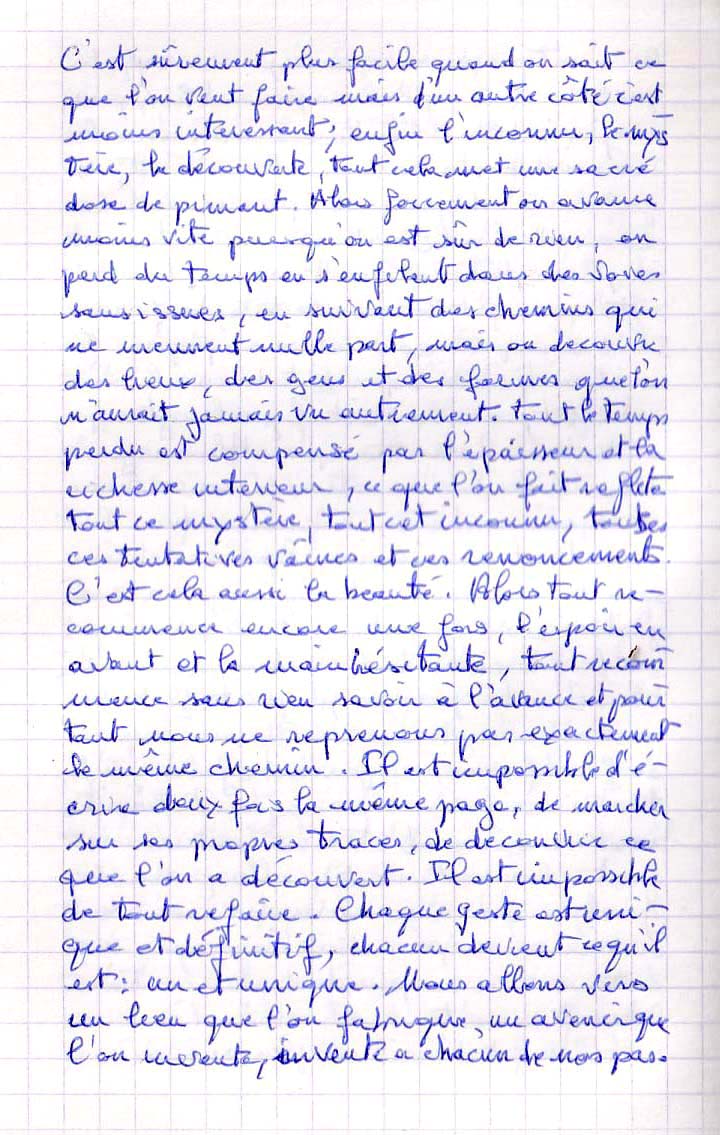 C'est sûrement plus facile quand on sait ce
que l'on veut faire mais d'un autre côté c'est
moins intéressant ; enfin l'inconnu, le mys
tère, la découverte, tout cela met une sacré
dose de piment. Alors forcement on avance
moins vite puisqu'on est sûr de rien, on
perd du temps en s'enfilant dans des voies
sans issues, en suivant des chemins qui
ne mennent nulle part, mais on decouvre
des lieux, des gens et des formes que l'on
n'aurait jamais vu autrement. tout le temps
perdu est compensé par l'épaisseur et la
richesse interieur, ce que l'on fait reflète
tout ce mystère, tout cet inconnu, toutes
ces tentatives vaines et ces renoncements.
C'est cela aussi la beauté. Alors tout re-
commence encore une fois, l'espoir en
avant et la main hésitante, tout recom
mence sans rien savoir à l'avance et pour
tant nous ne reprenons pas exactement
le même chemin. Il est impossible d'é-
crire deux fois la même page, de marcher
sur ses propres traces, de decouvrir ce
que l'on a découvert. Il est impossible
de tout refaire. Chaque geste est uni-
que et définitif, chacun devient ce qu'il
est : un et unique. Nous allons vers
un lieu que l'on fabrique, un avenir que
l'on invente, invente a chacun de nos pas.